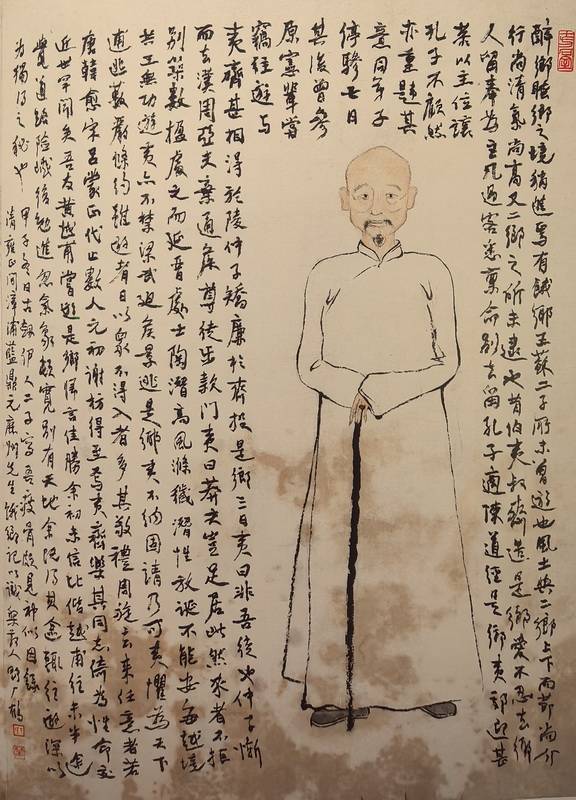 醉鄉睡鄉之境稍進焉有餓鄉王蘇二子所未曾遊也風土與二鄉上下而節尚介
行尚清氣尚高又二鄉之所未逮也昔伯夷叔齊造是鄉愛不忍去鄉
人留奉為主凡過客悉稟命別去留孔子適陳道經是鄉夷郊迎甚
恭以主位讓
孔子不顧然
亦重違其
意同弟子
停驂七日
其後曾參
原憲輩嘗
竊往遊與
夷齊甚相得於陵仲子矯廉於齊投是鄉三日夷曰非吾徒也仲子慚
而去漢周亞夫棄通侯尊徒步款門夷曰莽夫豈足居此然來者不拒
別築數椽處之而延晉處士陶潛高風滌穢潛性放誕不能安每越境
共王無功遊夷亦不禁梁武避侯景逃是鄉夷不納固請乃可夷懼為天下
逋逃藪嚴條約雖遊者日以眾不得入者多其敬禮周旋去來任意者若
唐韓愈宋呂蒙正代止數人元初謝枋得至焉夷齊樂其同志倚為性命交
近世罕聞矣吾友黃越甫嘗遊是鄉傳言佳勝余初未信比偕越甫往未半途
覺道路險巇後勉進忽氣象頓寬別有天地余既得其塗輒往遊深以
為獨得之秘也 甲子冬日古劍伊人二子寫吾瘦骨頗見神似因錄
清雍正間漳浦藍鼎元鹿洲先生餓鄉記以識